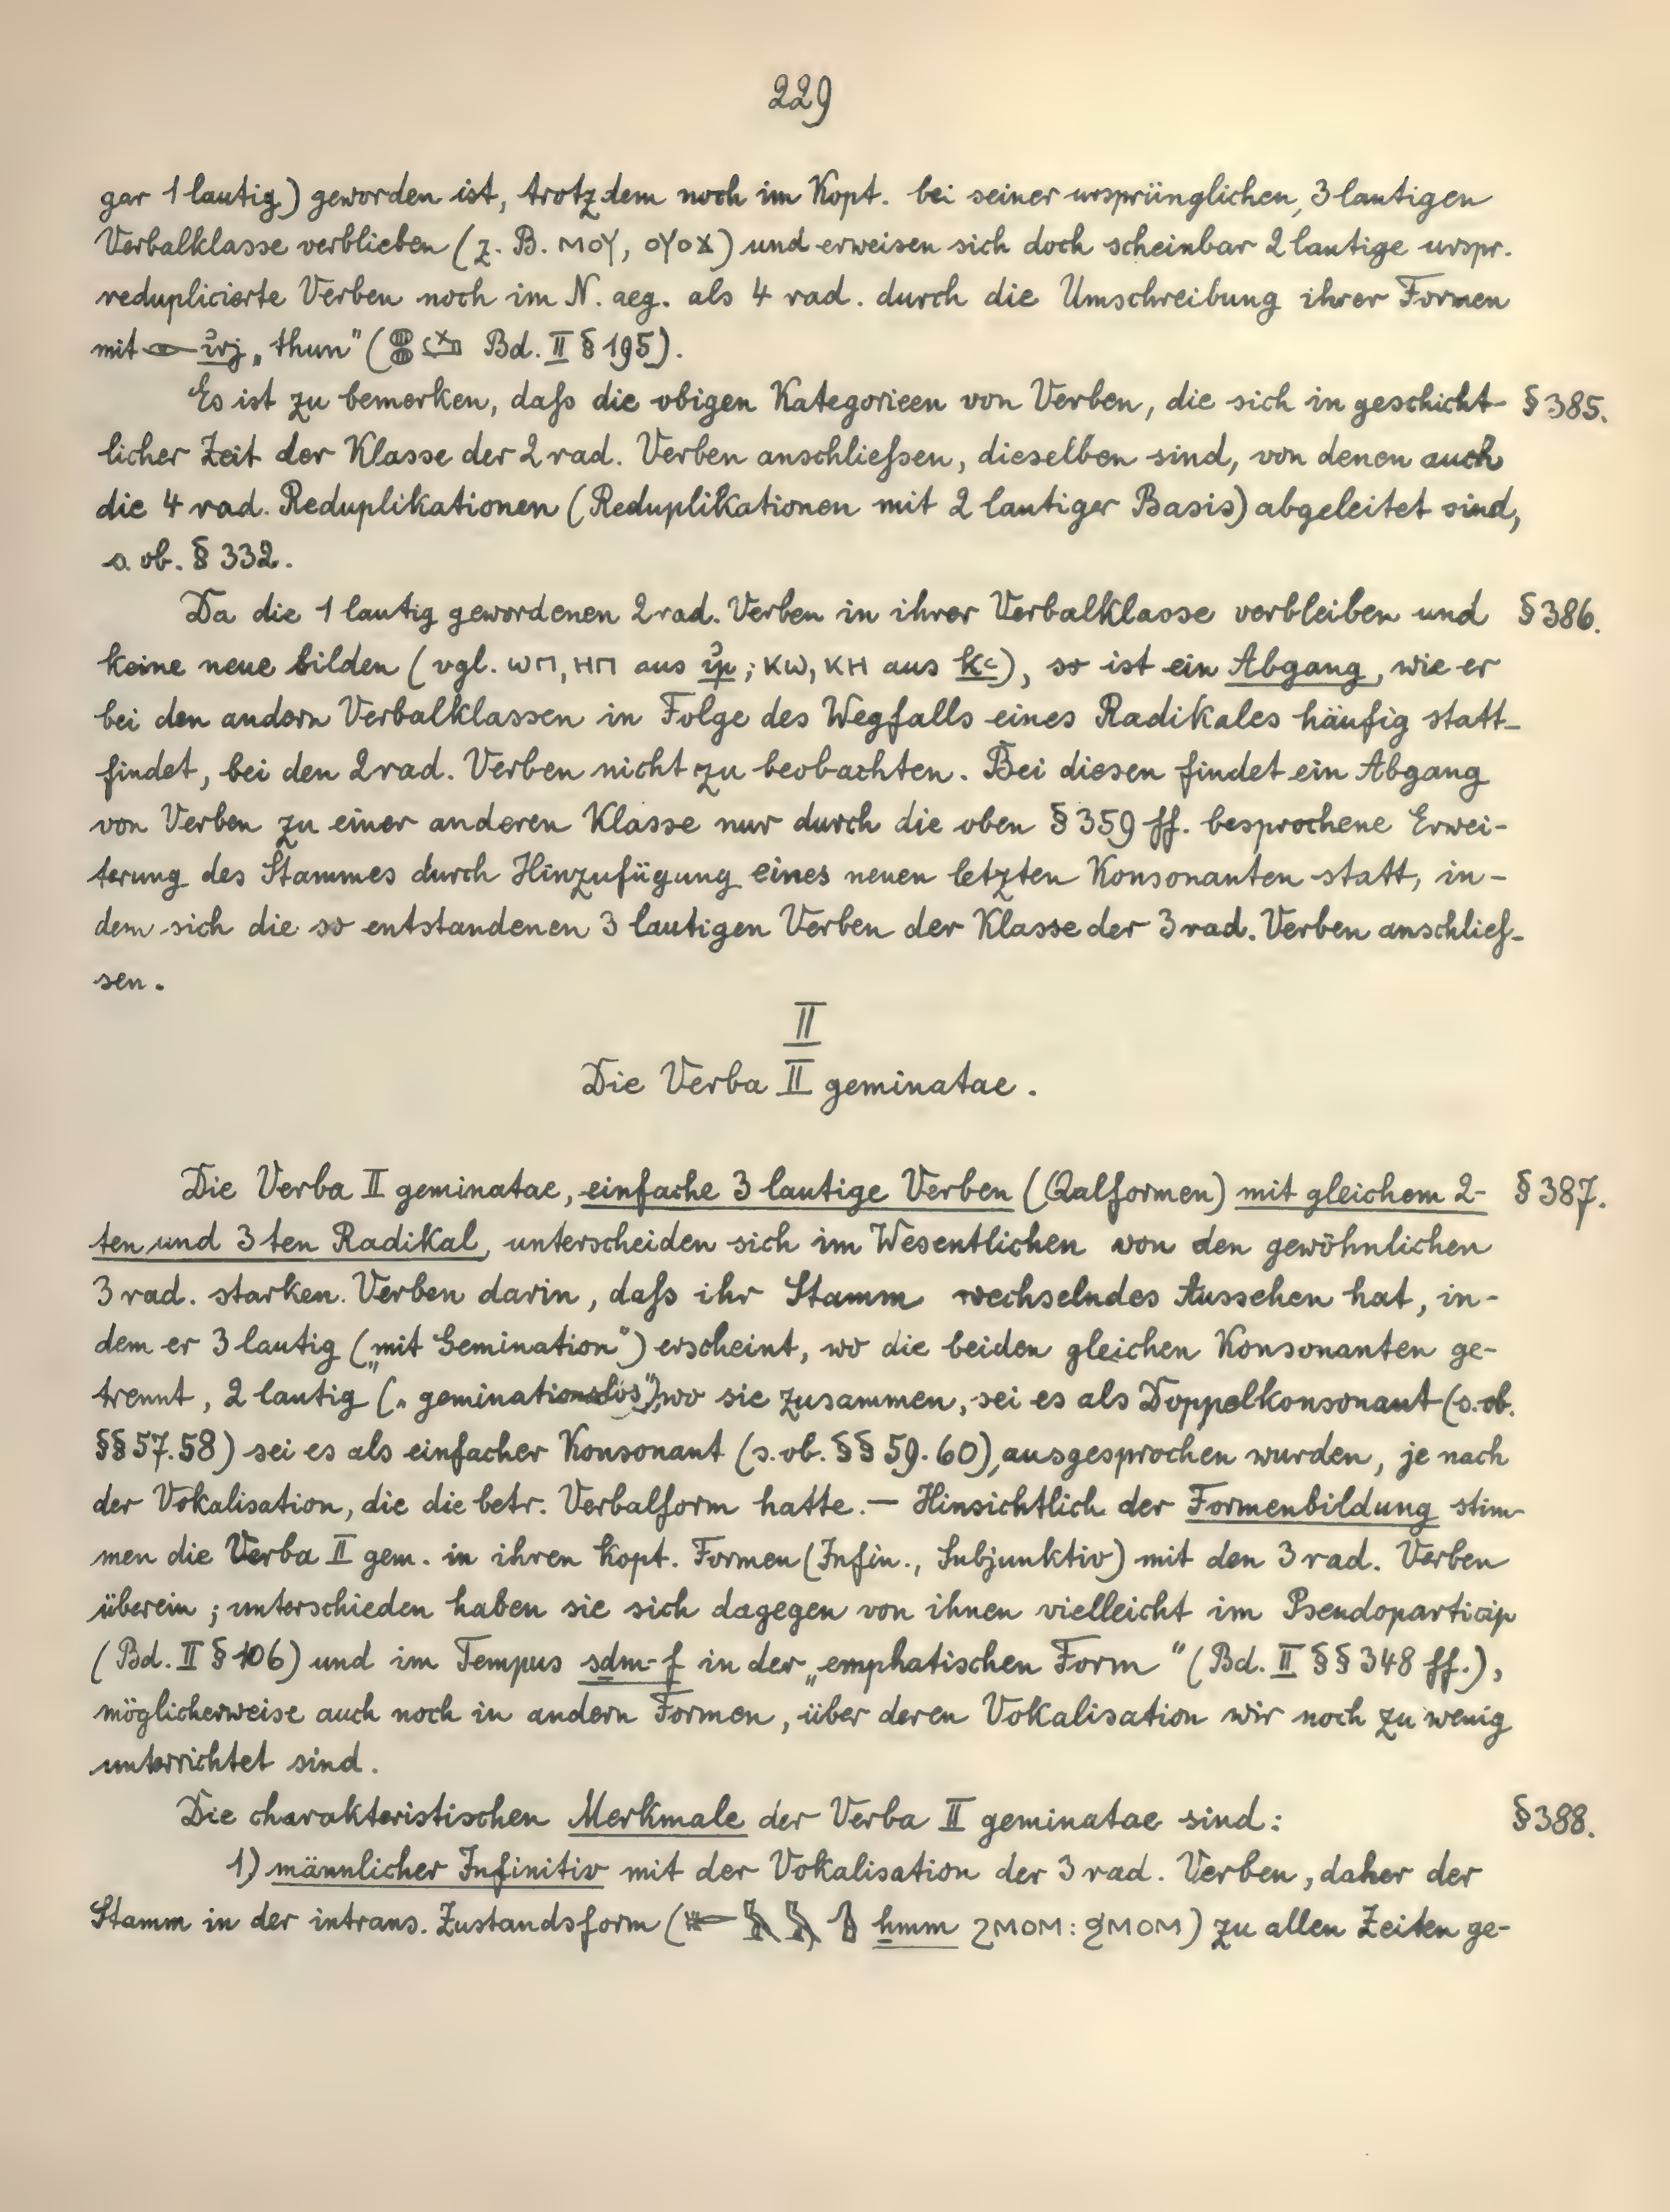 229
gar 1 lautig) geworden ist, trotzdem noch im Kopt. bei seiner ursprünglichen, 3 lautigen
Verbalklasse verblieben (z. B. ⲙⲟⲩ, ⲟⲩⲟϫ) und erweisen sich doch scheinbar 2 lautige urspr.
reduplicierte Verben noch im N. aeg. als 4 rad. durch die Umschreibung ihrer Formen
mit 𓁹 ı͗rj „thun" (𓐍𓐍 Bd. II § 195).
Es ist zu bemerken, daſs die obigen Kategorieen von Verben, die sich in geschicht- § 385.
licher Zeit der Klasse der 2 rad. Verben anschlieſsen, dieselben sind, von denen auch
die 4 rad. Reduplikationen (Reduplikationen mit 2 lautiger Basis) abgeleitet sind,
s. ob. § 332.
Da die 1 lautig gewordenen 2 rad. Verben in ihrer Verbalklasse verbleiben und § 386.
keine neue bilden (vgl. ⲱⲡ, ⲏⲡ aus ı͗p; ⲕⲱ, ⲕⲏ aus ḫꜥ), so ist ein Abgang, wie er
bei den andern Verbalklassen in Folge des Wegfalls eines Radikales häufig statt-
findet, bei den 2 rad. Verben nicht zu beobachten. Bei diesen findet ein Abgang
von Verben zu einer anderen Klasse nur durch die oben § 359 ff. besprochene Erwei-
terung des Stammes durch Hinzufügung eines neuen letzten Konsonanten statt, in-
dem sich die so entstandenen 3 lautigen Verben der Klasse der 3 rad. Verben anschlieſ-
sen.
II
Die Verba II geminatae.
Die Verba II geminatae, einfache 3 lautige Verben (Qalformen) mit gleichem 2- § 387.
ten und 3 ten Radikal, unterscheiden sich im Wesentlichen von den gewöhnlichen
3 rad. starken Verben darin, daſs ihr Stamm wechselndes Aussehen hat, in-
dem er 3 lautig („mit Gemination") erscheint, wo die beiden gleichen Konsonanten ge-
trennt, 2 lautig („geminationslos"), wo sie zusammen, sei es als Doppelkonsonant (s. ob.
§§ 57. 58) sei es als einfacher Konsonant (s. ob. §§ 59. 60), ausgesprochen wurden, je nach
der Vokalisation, die die betr. Verbalform hatte. — Hinsichtlich der Formenbildung stim-
men die Verba II gem. in ihren kopt. Formen (Infin., Subjunktiv) mit den 3 rad. Verben
überein; unterschieden haben sie sich dagegen von ihnen vielleicht im Pseudoparticip
(Bd. II § 106) und im Tempus sdm-f in der „emphatischen Form" (Bd. II §§ 348 ff.),
möglicherweise auch noch in andern Formen, über deren Vokalisation wir noch zu wenig
unterrichtet sind.
Die charakteristischen Merkmale der Verba II geminatae sind: § 388.
1) männlicher Infinitiv mit der Vokalisation der 3 rad. Verben, daher der
Stamm in der intrans. Zustandsform (𓄡𓅓𓅓𓊮 ẖmm ϩⲙⲟⲙ : ϧⲙⲟⲙ) zu allen Zeiten ge-